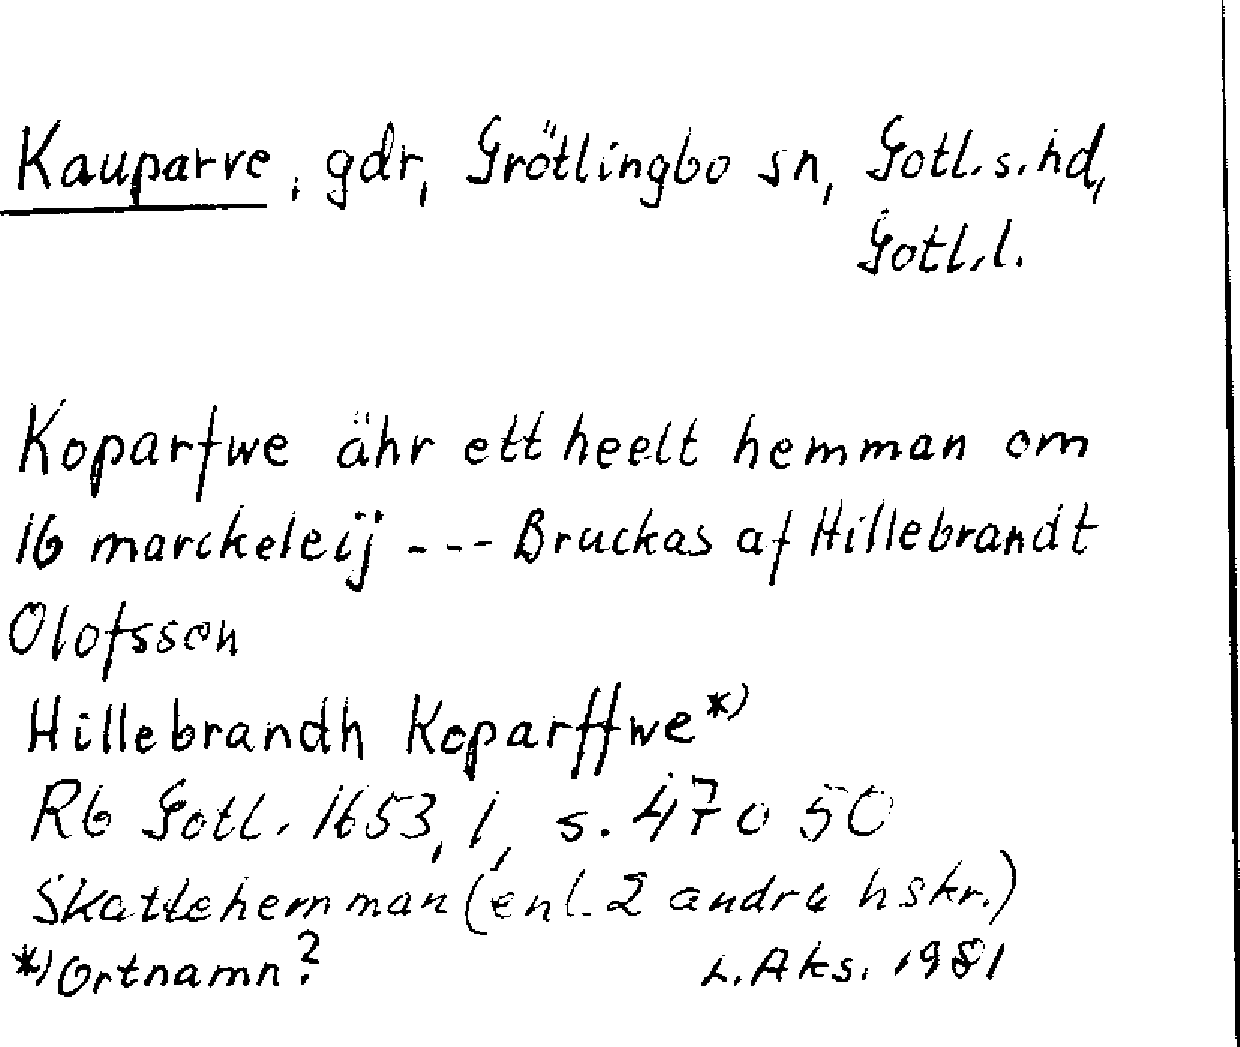 Kauparve, gdr, Grötlingbo sn, Gotl. s. hd,
Gotl. l.
Koparfwe ähr ett heelt hemman om
16 marckeleij --- Bruckas af Hillebrandt
Olofsson
Hillebrandh Koparffwe*)
Rb Gotl. 1653, 1, s. 47 o 50
Skattehemman (enl. 2 andra hskr.)
*) Ortnamn? L. Aks. 1981